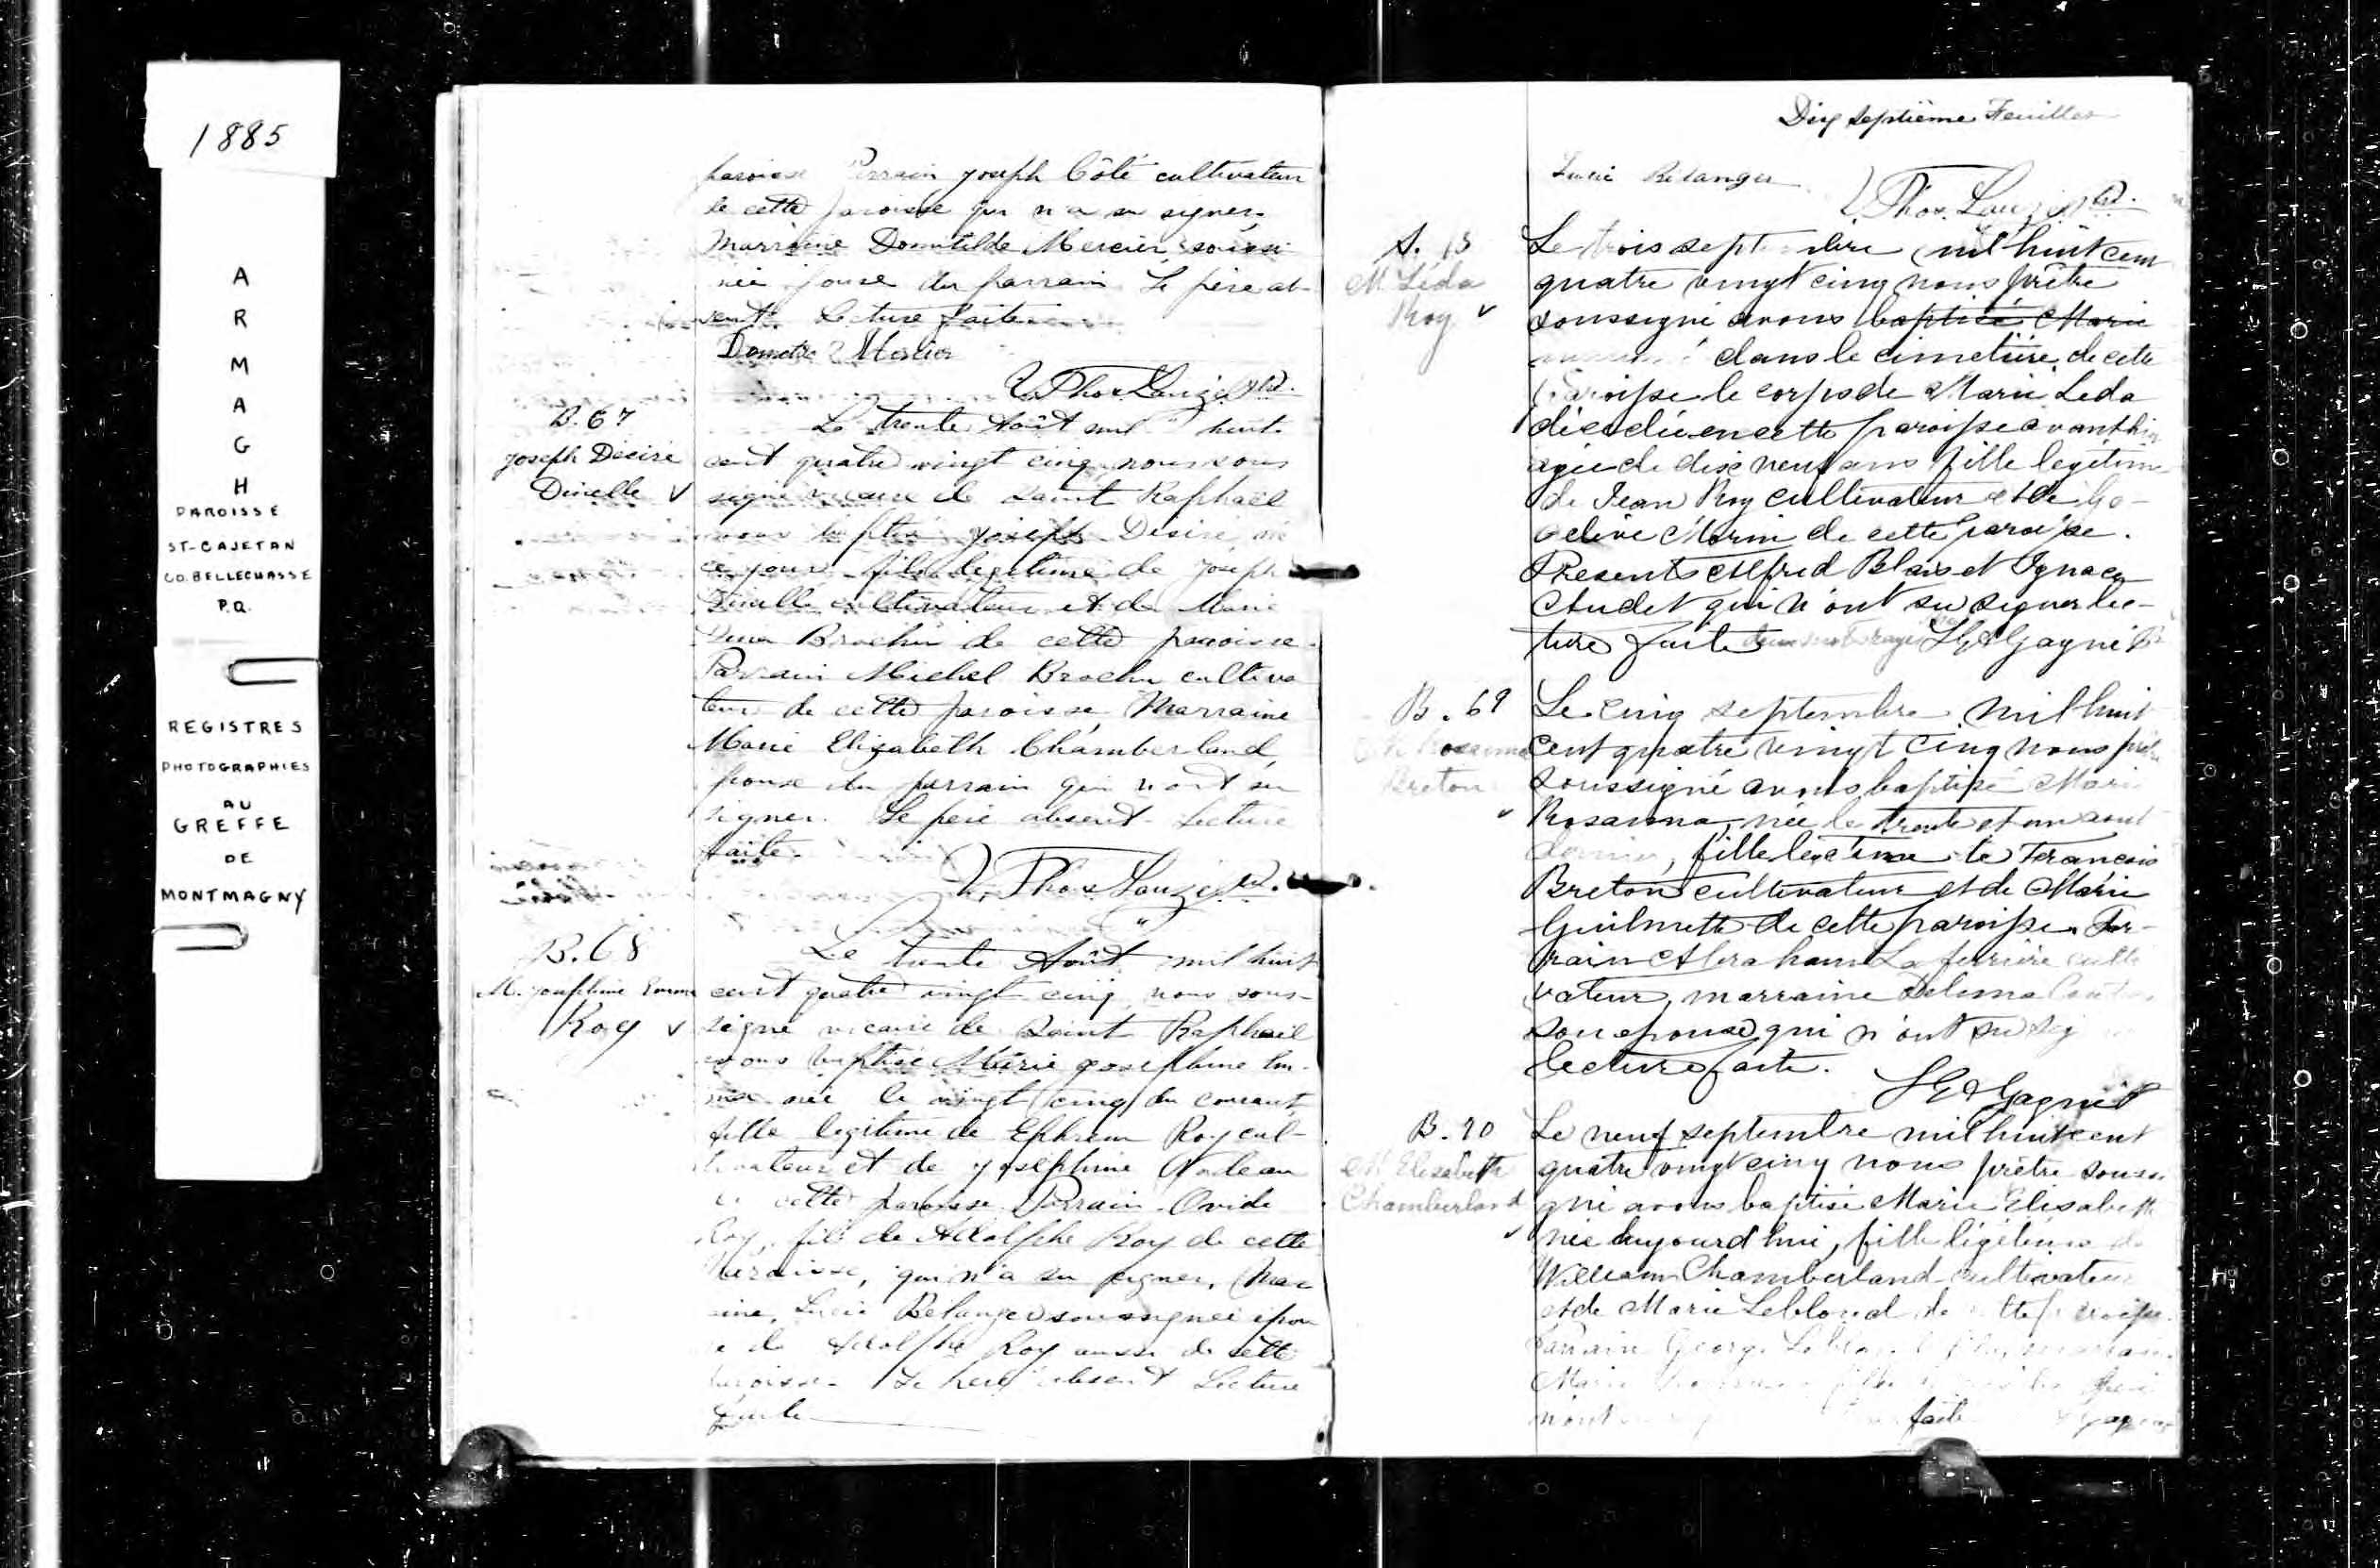 1885
A
R
M
A
G
H
PAROISSE
ST-CAJETAN
CO. BELLECHASSE
P.Q.
REGISTRES
PHOTOGRAPHIES
AU
GREFFE
DE
MONTMAGNY
paroisse Parrain Joseph Côté cultivateur
de cette paroisse qui n'a su signer.
Marraine Domitilde Mercier soussi
née pouse du parrain Le père ab
sent. Lecture faite
Mercier
V. Phos. Lauzé ptr.
B. 67
Joseph Désiré
Dinelle V
Le trente Août mil huit
cent quatre vingt cinq, nous sous
signé vicaire de Saint Raphaël
avons baptisé Joseph Désiré, né
ce jour, fils légitime de Joseph
Dinelle cultivateur et de Marie
Brochu de cette paroisse.
Parrain Michel Brochu cultiva
teur de cette paroisse, Marraine
Marie Elizabeth Chamberland,
pouse du parrain qui n'ont su
signer. Le père absent. Lecture
faite.
V. Phos Lauzé ptr.
B. 68
M. Josephine Emma
Roy V
Le trente Août mil huit
cent quatre vingt cinq, nous sous-
signé vicaire de Saint Raphaël
avons baptisé Marie Josephine Em-
ma née le vingt cinq du courant,
fille légitime de Ephrem Roy cul-
tivateur et de Josephine Nadeau
de cette paroisse Parrain Ovide
Roy, fils de Adolphe Roy de cette
paroisse, qui n'a su signer, Mar
raine, Lucie Bélanger soussignée épou
se de Adolphe Roy aussi de cette
paroisse. Le père absent Lecture
faite
Dix septième Feuillet
Lucie Bélanger
V. Phos. Lauzé ptr.
S. 13
M Léda
Roy V
Le trois septembre mil huit cent
quatre vingt cinq nous prêtre
soussigné avons baptisé Marie
inhumé dans le cimetière de cette
paroisse le corps de Marie Leda
décédée en cette paroisse avant hier
agée de dix neuf ans fille legitime
de Jean Roy cultivateur et de
Morin de cette paroisse.
Présents Alfred Blais et Ignace
Audet qui n'ont su signer lec-
ture faite deux mots rayés Gagné Ptr
B. 69
M Rosanna
Breton
V
Le cinq septembre mil huit
cent quatre vingt cinq nous prêtre
soussigné avons baptisé Marie
Rosanna, née le trente et un aout
dernier, fille légitime de Francois
Breton cultivateur et de Marie
Guilmette de cette paroisse. Par-
rain Abraham Laferrière culti
vateur, marraine Delima
son epouse qui n'ont su sig
lecture faite.
Gagné Ptr
B. 70
M Elisabeth
Chamberland
V
Le neuf septembre mil huit cent
quatre vingt cinq nous prêtre soussi
gné avons baptisé Marie Elisabeth
née aujourd'hui, fille légitime de
William Chamberland cultivateur
et de Marie Leblond de cette paroisse.
Parrain George Leblond
Marie
n'ont faite Gagné